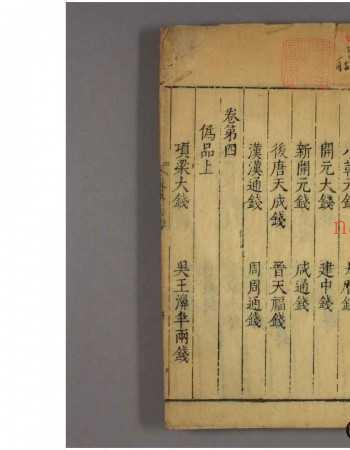 開元大錢　建中錢
新開元錢　咸通錢
後唐天成錢　晉天福錢
漢漢通錢　周周通錢
卷第四
偽品上
項梁大錢　吳王濞半兩錢